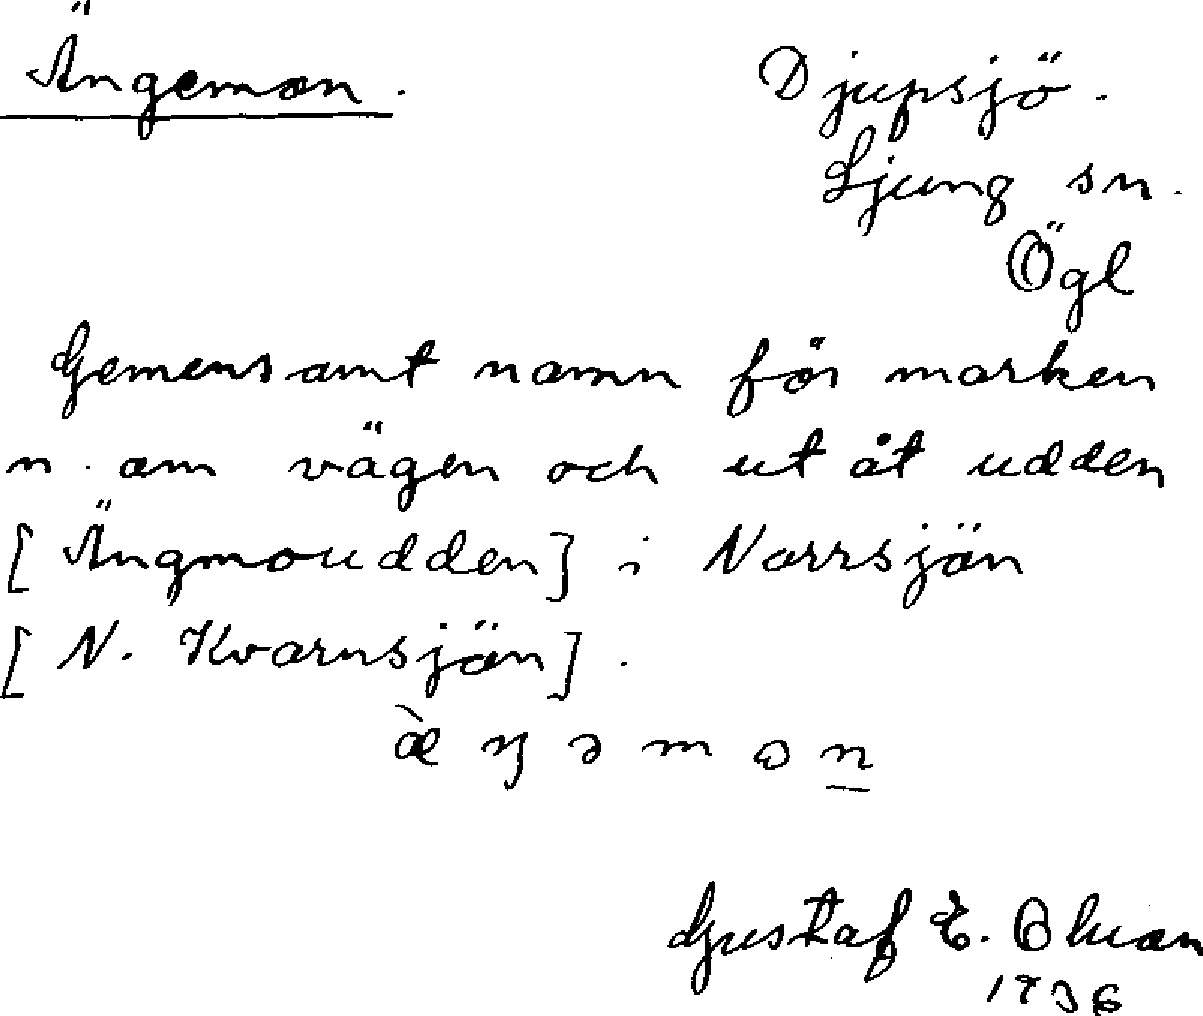 Ängemon.
Djupsjö.
Ljung sn.
Ögl
Gemensamt namn för marken
n. om vägen och ut åt udden
[Ängmoudden] i Norrsjön
[N. Kvarnsjön].
Gustaf E.
1936